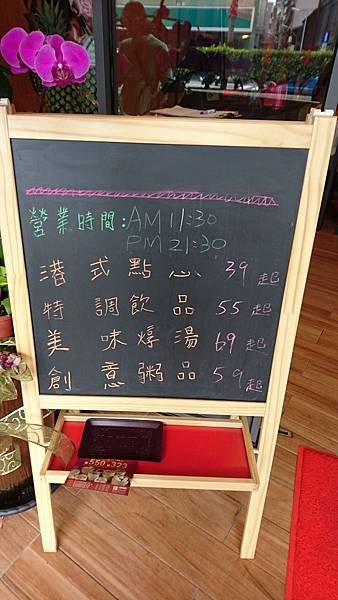 營業時間:AM 11:30
PM 21:30
港式點心 39起
特調飲品 55起
美味燉湯 69起
創意粥品 59起
550 323